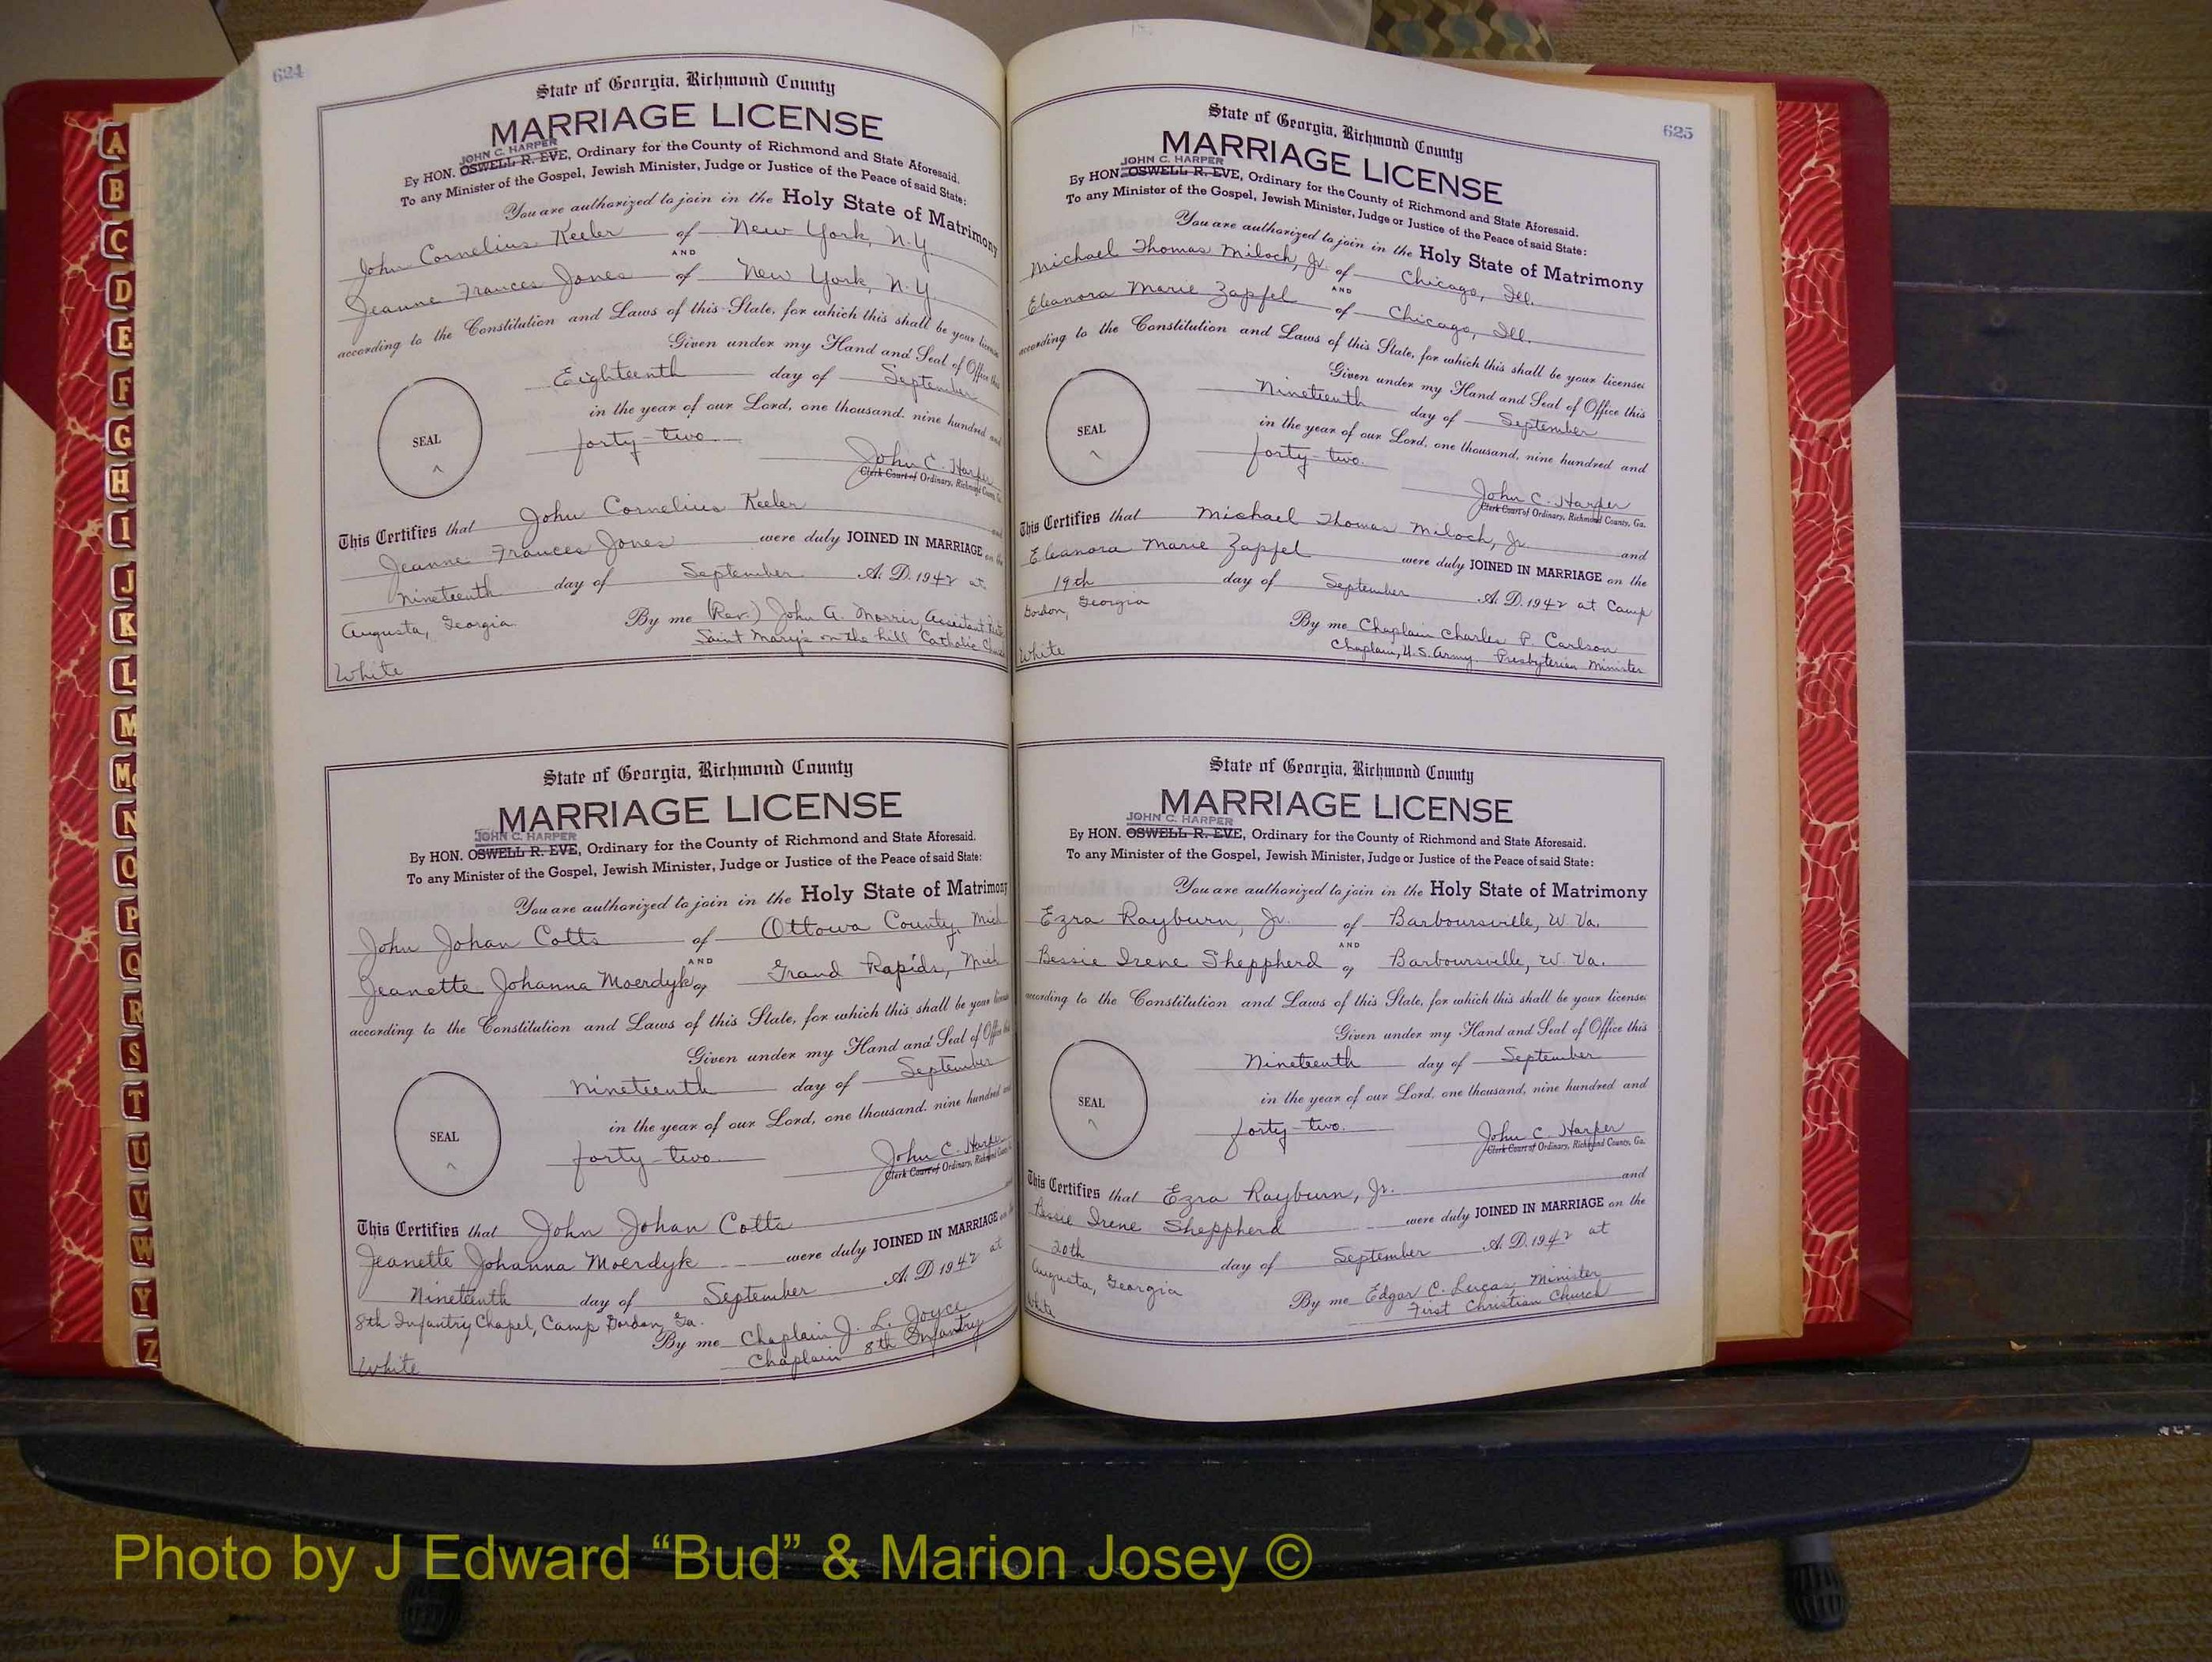 A
B
C
D
E
F
G
H
I
J
K
L
M
Mc
N
O
P
Q
R
S
T
U
V
W
Y
Z
624
State of Georgia, Richmond County
MARRIAGE LICENSE
JOHN C. HARPER
By HON. OSWELL R. EVE, Ordinary for the County of Richmond and State Aforesaid.
To any Minister of the Gospel, Jewish Minister, Judge or Justice of the Peace of said State:
You are authorized to join in the Holy State of Matrimony
John Cornelius Keeler of New York, N.Y.
AND
Jeanne Frances Jones of New York, N.Y.
according to the Constitution and Laws of this State, for which this shall be your license
Given under my Hand and Seal of Office this
Eighteenth day of September
in the year of our Lord, one thousand, nine hundred and
SEAL
forty-two
John C. Harper
Clerk Court of Ordinary, Richmond County, Ga.
This Certifies that John Cornelius Keeler and
Jeanne Frances Jones were duly JOINED IN MARRIAGE on the
Nineteenth day of September A. D. 1942 at
Augusta, Georgia By me (Rev.) John A. Morris, Assistant
Saint Mary's on the hill Catholic
White
State of Georgia, Richmond County
MARRIAGE LICENSE
JOHN C. HARPER
By HON. OSWELL R. EVE, Ordinary for the County of Richmond and State Aforesaid.
To any Minister of the Gospel, Jewish Minister, Judge or Justice of the Peace of said State:
You are authorized to join in the Holy State of Matrimony
John Johan Cotts of Ottowa County, Mich
AND
Jeanette Johanna Moerdyk of Grand Rapids, Mich
according to the Constitution and Laws of this State, for which this shall be your license
Given under my Hand and Seal of Office this
Nineteenth day of September
in the year of our Lord, one thousand, nine hundred and
SEAL
forty-two
John C. Harper
Clerk Court of Ordinary, Richmond County
This Certifies that John Johan Cotts and
Jeanette Johanna Moerdyk were duly JOINED IN MARRIAGE on the
Nineteenth day of September A. D. 1942 at
8th Infantry Chapel, Camp Gordon, Ga.
By me Chaplain J. L. Joyce
Chaplain 8th Infantry
White
625
State of Georgia, Richmond County
MARRIAGE LICENSE
JOHN C. HARPER
By HON. OSWELL R. EVE, Ordinary for the County of Richmond and State Aforesaid.
To any Minister of the Gospel, Jewish Minister, Judge or Justice of the Peace of said State:
You are authorized to join in the Holy State of Matrimony
Michael Thomas Miloch, Jr. of Chicago, Ill.
AND
Eleanora Marie Zapfel of Chicago, Ill.
according to the Constitution and Laws of this State, for which this shall be your license:
Given under my Hand and Seal of Office this
Nineteenth day of September
in the year of our Lord, one thousand, nine hundred and
SEAL
forty-two.
John C. Harper
Clerk Court of Ordinary, Richmond County, Ga.
This Certifies that Michael Thomas Miloch, Jr. and
Eleanora Marie Zapfel were duly JOINED IN MARRIAGE on the
19th day of September A. D. 1942 at Camp
Gordon, Georgia
By me Chaplain Charles P. Carlson
Chaplain, U.S. Army. Presbyterian Minister
White
State of Georgia, Richmond County
MARRIAGE LICENSE
JOHN C. HARPER
By HON. OSWELL R. EVE, Ordinary for the County of Richmond and State Aforesaid.
To any Minister of the Gospel, Jewish Minister, Judge or Justice of the Peace of said State:
You are authorized to join in the Holy State of Matrimony
Ezra Rayburn, Jr. of Barboursville, W. Va.
AND
Bessie Irene Sheppherd of Barboursville, W. Va.
according to the Constitution and Laws of this State, for which this shall be your license:
Given under my Hand and Seal of Office this
Nineteenth day of September
in the year of our Lord, one thousand, nine hundred and
SEAL
forty-two.
John C. Harper
Clerk Court of Ordinary, Richmond County, Ga.
This Certifies that Ezra Rayburn, Jr. and
Bessie Irene Sheppherd were duly JOINED IN MARRIAGE on the
20th day of September A. D. 1942 at
Augusta, Georgia
By me Edgar C. Lucas, Minister
First Christian Church
White
Photo by J Edward “Bud” & Marion Josey ©